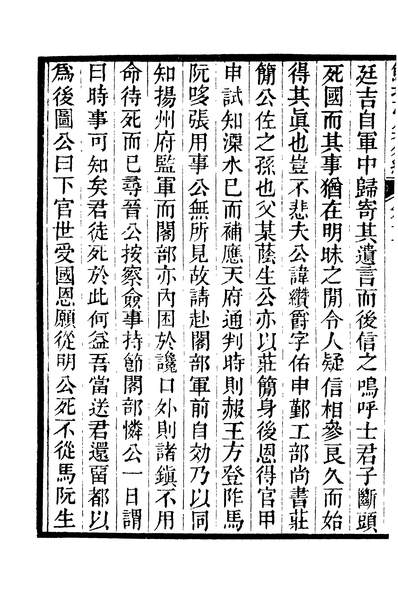 廷吉自軍中歸寄其遺言而後信之嗚呼士君子斷頭
死國而其事猶在明昧之閒令人疑信相參良久而始
得其眞也豈不悲夫公諱纘爵字佑申鄞工部尚書莊
簡公佐之孫也父某蔭生公亦以莊簡身後恩得官甲
申試知溧水已而補應天府通判時則赧王方登阼馬
阮哆張用事公無所見故請赴閣部軍前自効乃以同
知揚州府監軍而閣部亦內困於讒口外則諸鎭不用
命待死而已尋晉公按察僉事持節閣部憐公一日謂
曰時事可知矣君徒死於此何益吾當送君還留都以
爲後圖公曰下官世受國恩願從明公死不從馬阮生